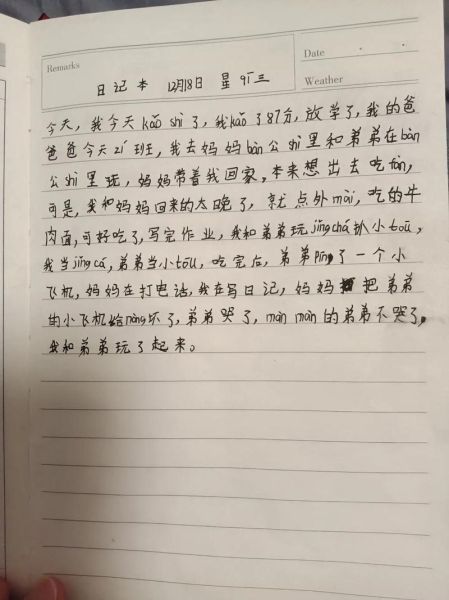 Remarks
Date
Weather
日记本 12月18日 星qī三
今天，我今天kǎo shì了，我kǎo了87分，放学了，我的爸
爸爸今天zí班，我去妈妈bàn公shì里和弟弟在bàn
公shì里玩，妈妈带着我回家，本来想出去吃fàn，
可是，我和妈妈回来的太晚了，就点外mài，吃的牛
肉面，可好吃了，写完作业，我和弟弟玩jǐngchá扒小tōu，
我当jǐngcá，弟弟当小tōu，吃完后，弟弟pīn了一个小
飞机，妈妈在打电话，我在写日记，妈妈把弟弟
的小飞机给nòng坏了，弟弟哭了，màn màn的弟弟不哭了，
我和弟弟玩了起来。